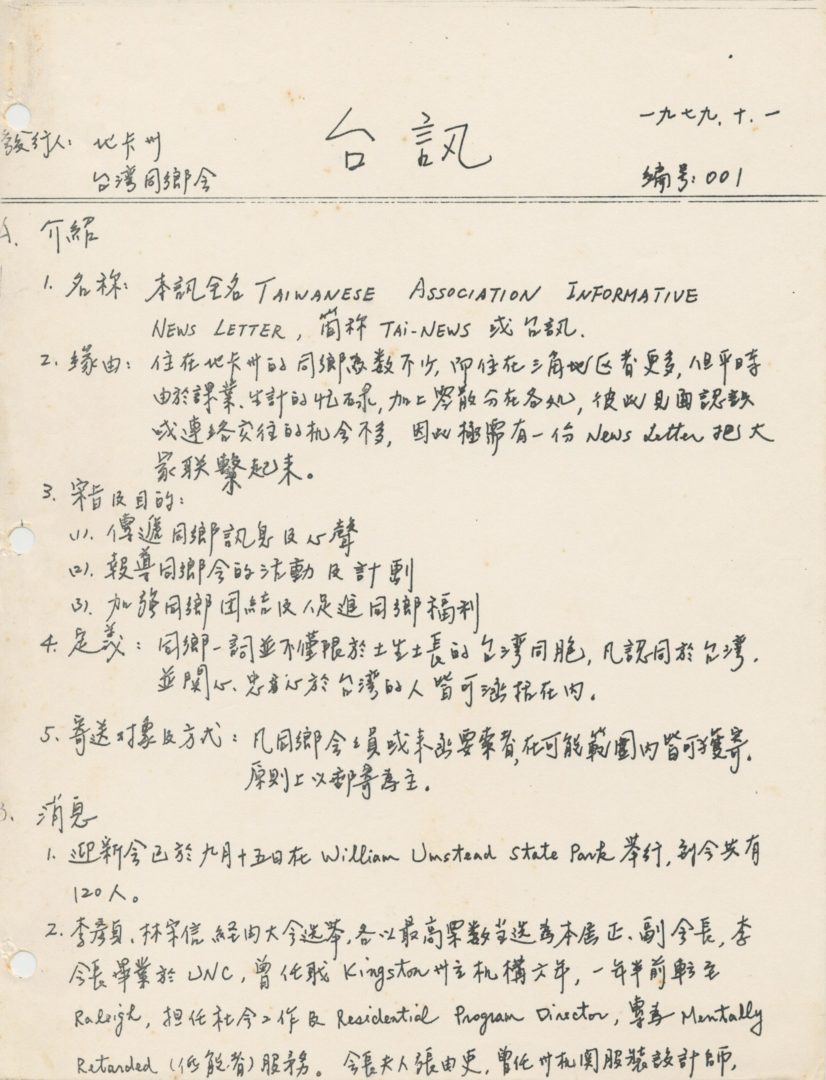 台訊
一九七九.十.一
發行人: 北卡州
台湾同鄉会
編号: 001
A. 介紹
1. 名称: 本訊全名 TAIWANESE ASSOCIATION INFORMATIVE
NEWS LETTER, 简称 TAI-NEWS 或台訊.
2. 緣由: 住在北卡州的同鄉為数不少, 即住在三角地区者更多, 但平時
由於課業、生計的忙碌, 加上零散分在各処, 彼此見面認識
或連絡交往的机会不多, 因此極需有一份 News Letter 把大
家联繫起来。
3. 宗旨及目的:
(1). 傳遞同鄉訊息及心聲
(2). 報導同鄉会的活動及計劃
(3). 加强同鄉团結及促進同鄉福利
4. 定義: 同鄉一詞並不僅限於土生土長的台湾同胞, 凡認同於台湾.
並関心、忠於台湾的人皆可涵括在内。
5. 寄送对象及方式: 凡同鄉会会員或来函要索者, 在可能範圍内皆可獲寄.
原則上以郵寄為主.
B. 消息
1. 迎新会已於九月十五日在 William Umstead State Park 举行, 到会共有
120人。
2. 李彦貞、林宗信経由大会选举, 各以最高票数当选為本届正、副会長, 李
会長畢業於 UNC, 曾任職 Kingston 州立机構六年, 一年半前転至
Raleigh, 担任社会工作及 Residential Program Director, 專為 Mentally
Retarded (低能者) 服務。会長夫人張由更, 曾任州机関服装設計師,